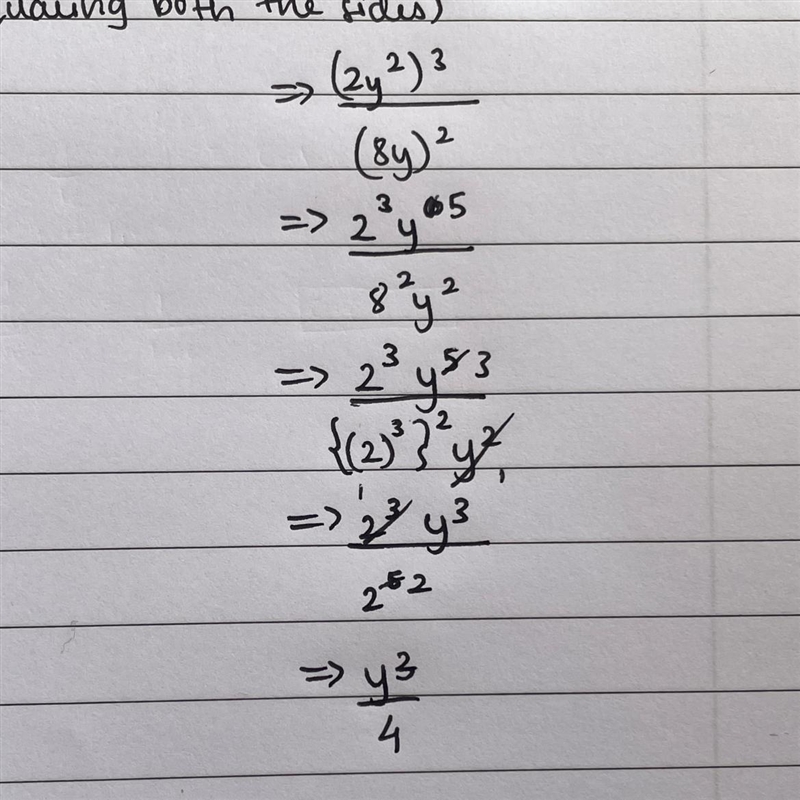 both the sides)
=> (2y²)³
(8y)²
=> 2³y⁵
8²y²
=> 2³ y⁵ 3
{(2)³}² y² 1
=> 1 2³ y³
2⁵ 2
=> y³
4